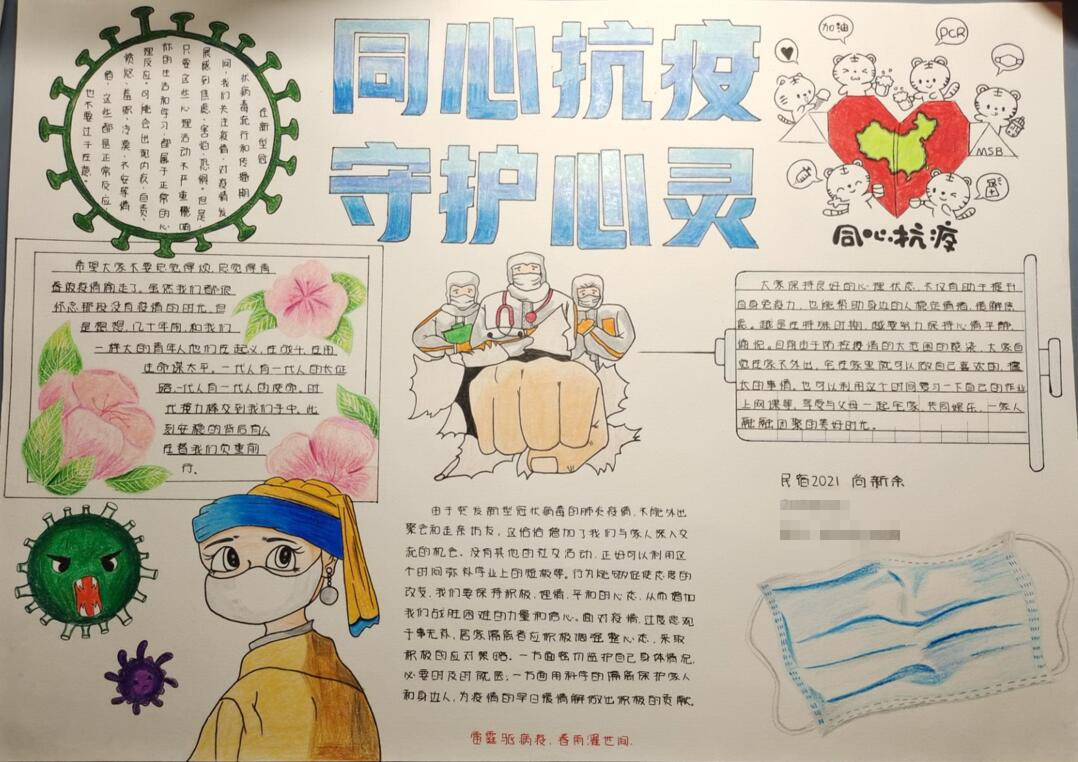 同心抗疫
守护心灵
在新型冠
状病毒流行和传播期
间,我们关注疫情,对疫情发
展感到焦虑、害怕、恐惧。但是
只要这些心理活动不严重影响
你的生活和学习,都属于正常的心
理反应。可能会出现内疚、自责、
愤怒、羞耻、冷漠、不安等情
绪,这些都是正常反应
也不要过于在意。
加油
PCR
MSB
同心抗疫
希望大家不要总觉得烦,总觉得青
春被疫情偷走了。虽然我们都很
怀恋那段没有疫情的时光,但
是想想,几十年前,和我们
一样大的青年人他们在起义,在战斗,在用
生命保太平。一代人有一代人的长征
路,一代人有一代人的使命。时
代接力棒交到我们手中,此
刻安稳的背后有人
在替我们负重前
行。
大家保持良好的心理状态,不仅有助于提升
自身免疫力,也能帮助身边的人稳定情绪,缓解焦
虑。越是在特殊时期,越要努力保持心情平静、
愉悦。目前由于防控疫情的大范围的感染,大家自
觉在家不外出,宅在家里就可以做自己喜欢的,擅
长的事情,也可以利用这个时间复习一下自己的作业
上网课等,享受与父母一起宅家,共同娱乐,一家人
融融团聚的美好时光。
民宿2021 尚新余
由于突发新型冠状病毒的肺炎疫情,不能外出
聚会和走亲访友,这恰恰增加了我们与家人深入交
流的机会,没有其他的社交活动,正好可以利用这
个时间弥补学业上的短板等。行为能够促使态度的
改变,我们要保持积极、理情、平和的心态,从而增加
我们战胜困难的力量和信心。面对疫情,过度悲观
于事无补,居家隔离者应积极调整整心态,采取
积极的应对策略。一方面密切监护自己身体情况,
必要时及时就医;一方面用科学的隔离保护家人
和身边人,为疫情的早日缓情解做出积极的贡献。
雷霆驱病疫,春雨濯世间.